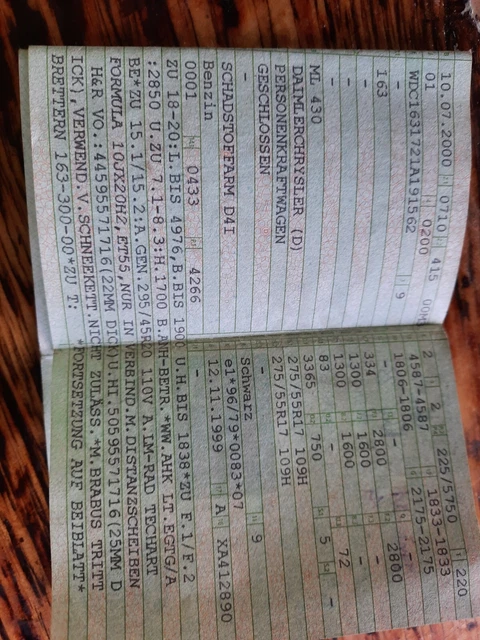 10.07.2000 0710 415
01 0200
WDC1631721A191562 9
-
163 -
-
ML 430
DAIMLERCHRYSLER (D)
PERSONENKRAFTWAGEN
GESCHLOSSEN
-
SCHADSTOFFARM D4I
Benzin
0001 0433 4266
2 2 225/5750 220
4587-4587 1833-1833
1806-1806 2175-2175
- - 2800
334 2800 -
1300 1600 -
1300 1600 72
83 - 5 -
3365 750
275/55R17 109H
275/55R17 109H
-
Schwarz 9
e1*96/79*0083*07
12.11.1999 A XA412890
ZU 18-20:L.BIS 4976,B.BIS 1900 U.H.BIS 1838*ZU F.1/F.2
:2850 U.ZU 7.1-8.3:H.1700 B.AHH-BETR.*WW.AHK LT.EGTG/A
BE*ZU 15.1/15.2:A.GEN.295/45R20 110V A.IM-RAD TECHART
FORMULA 10JX20H2,ET55,NUR IN VERBIND.M.DISTANZSCHEIBEN
H&R VO.:44595571716(22MM DICK)U.HI.50595571716(25MM D
ICK),VERWEND.V.SCHNEEKETT.NICHT ZULÄSS.*M.BRABUS TRITT
BRETTERN 163-300-00*ZU T: *FORTSETZUNG AUF BEIBLATT*